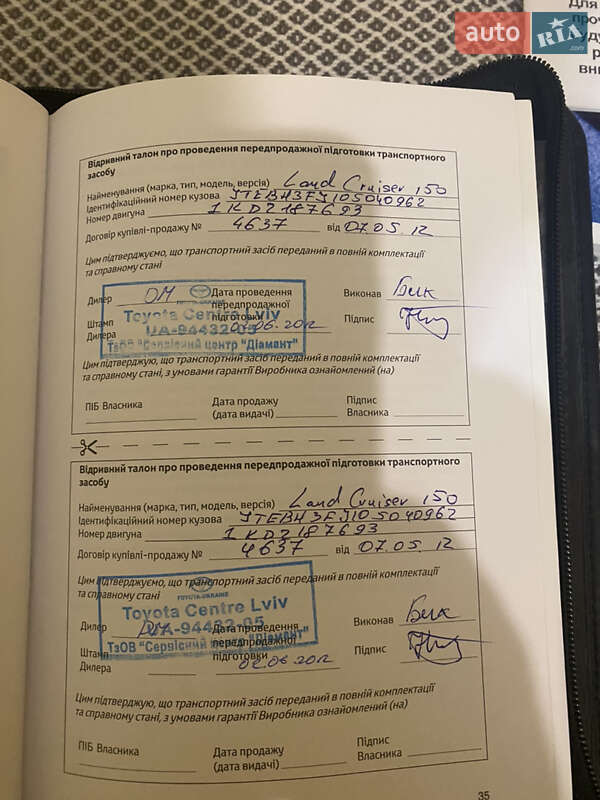 auto RIA .com
Для
Відривний талон про проведення передпродажної підготовки транспортного
засобу
Найменування (марка, тип, модель, версія) Land Cruiser 150
Ідентифікаційний номер кузова JTEBH3FJ105040962
Номер двигуна 1KDZ187693
Договір купівлі-продажу № 4637 від 07.05.12
Цим підтверджуємо, що транспортний засіб переданий в повній комплектації
та справному стані
Дилер Дата проведення Виконав
передпродажної
Toyota Centre Lviv
Штамп підготовки Підпис
UA-94432-05
Дилера
ТзОВ "Сервісний центр "Діамант"
Цим підтверджую, що транспортний засіб переданий в повній комплектації
та справному стані, з умовами гарантії Виробника ознайомлений (на)
ПІБ Власника Дата продажу Підпис
(дата видачі) Власника
Відривний талон про проведення передпродажної підготовки транспортного
засобу
Найменування (марка, тип, модель, версія) Land Cruiser 150
Ідентифікаційний номер кузова JTEBH3FJ105040962
Номер двигуна 1KDZ187693
Договір купівлі-продажу № 4637 від 07.05.12
Цим підтверджуємо, що транспортний засіб переданий в повній комплектації
та справному стані
TOYOTA-UKRAINE
Toyota Centre Lviv
Дилер UA-94432-05 Дата проведення Виконав
ТзОВ "Сервісний центр "Діамант"
передпродажної
Штамп підготовки Підпис
Дилера 02.06.2012
Цим підтверджую, що транспортний засіб переданий в повній комплектації
та справному стані, з умовами гарантії Виробника ознайомлений (на)
ПІБ Власника Дата продажу Підпис
(дата видачі) Власника
35